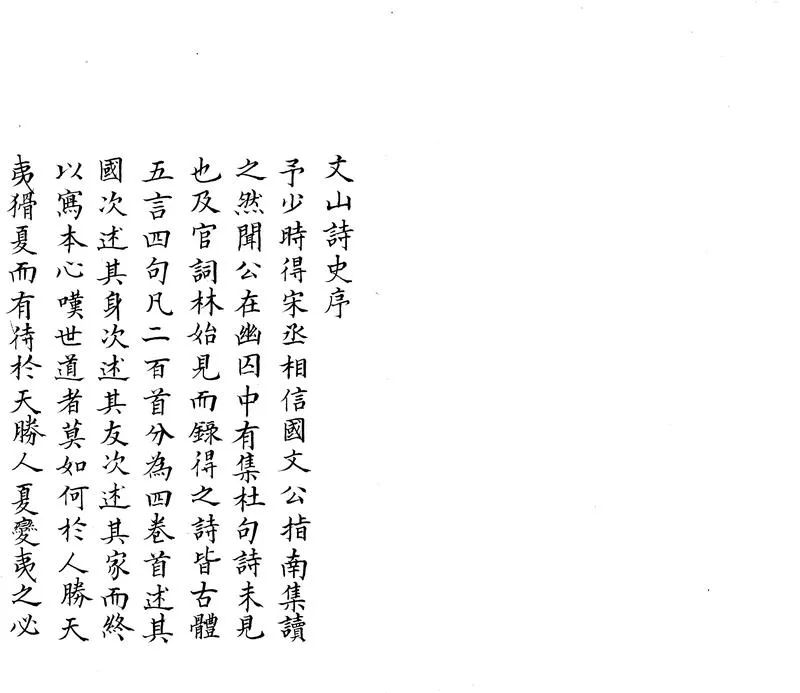 文山詩史序
予少時得宋丞相信國文公指南集讀
之然聞公在幽囚中有集杜句詩未見
也及官詞林始見而錄得之詩皆古體
五言四句凡二百首分為四卷首述其
國次述其身次述其友次述其家而終
以寫本心嘆世道者莫如何於人勝天
夷猾夏而有待於天勝人夏變夷之必